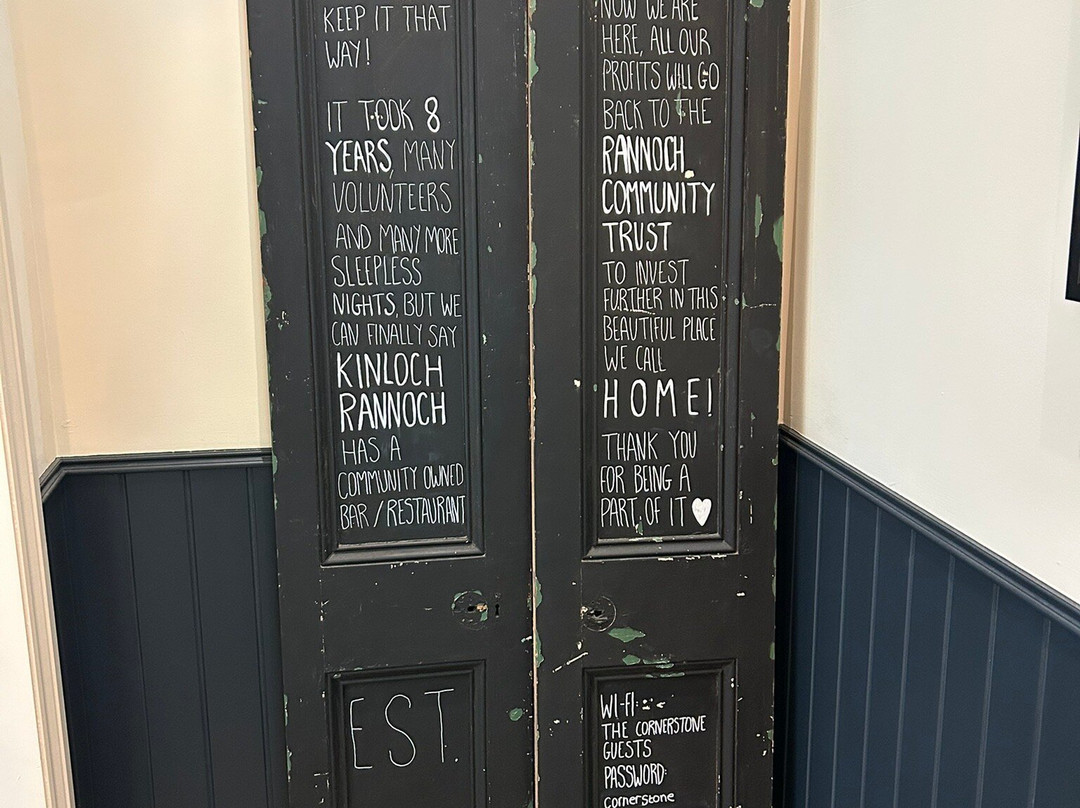 KEEP IT THAT
WAY!
IT TOOK 8
YEARS, MANY
VOLUNTEERS
AND MANY MORE
SLEEPLESS
NIGHTS, BUT WE
CAN FINALLY SAY
KINLOCH
RANNOCH
HAS A
COMMUNITY OWNED
BAR / RESTAURANT
EST.
NOW WE ARE
HERE, ALL OUR
PROFITS WILL GO
BACK TO THE
RANNOCH
COMMUNITY
TRUST
TO INVEST
FURTHER IN THIS
BEAUTIFUL PLACE
WE CALL
HOME!
THANK YOU
FOR BEING A
PART OF IT
WI-FI:
THE CORNERSTONE
GUESTS
PASSWORD:
cornerstone